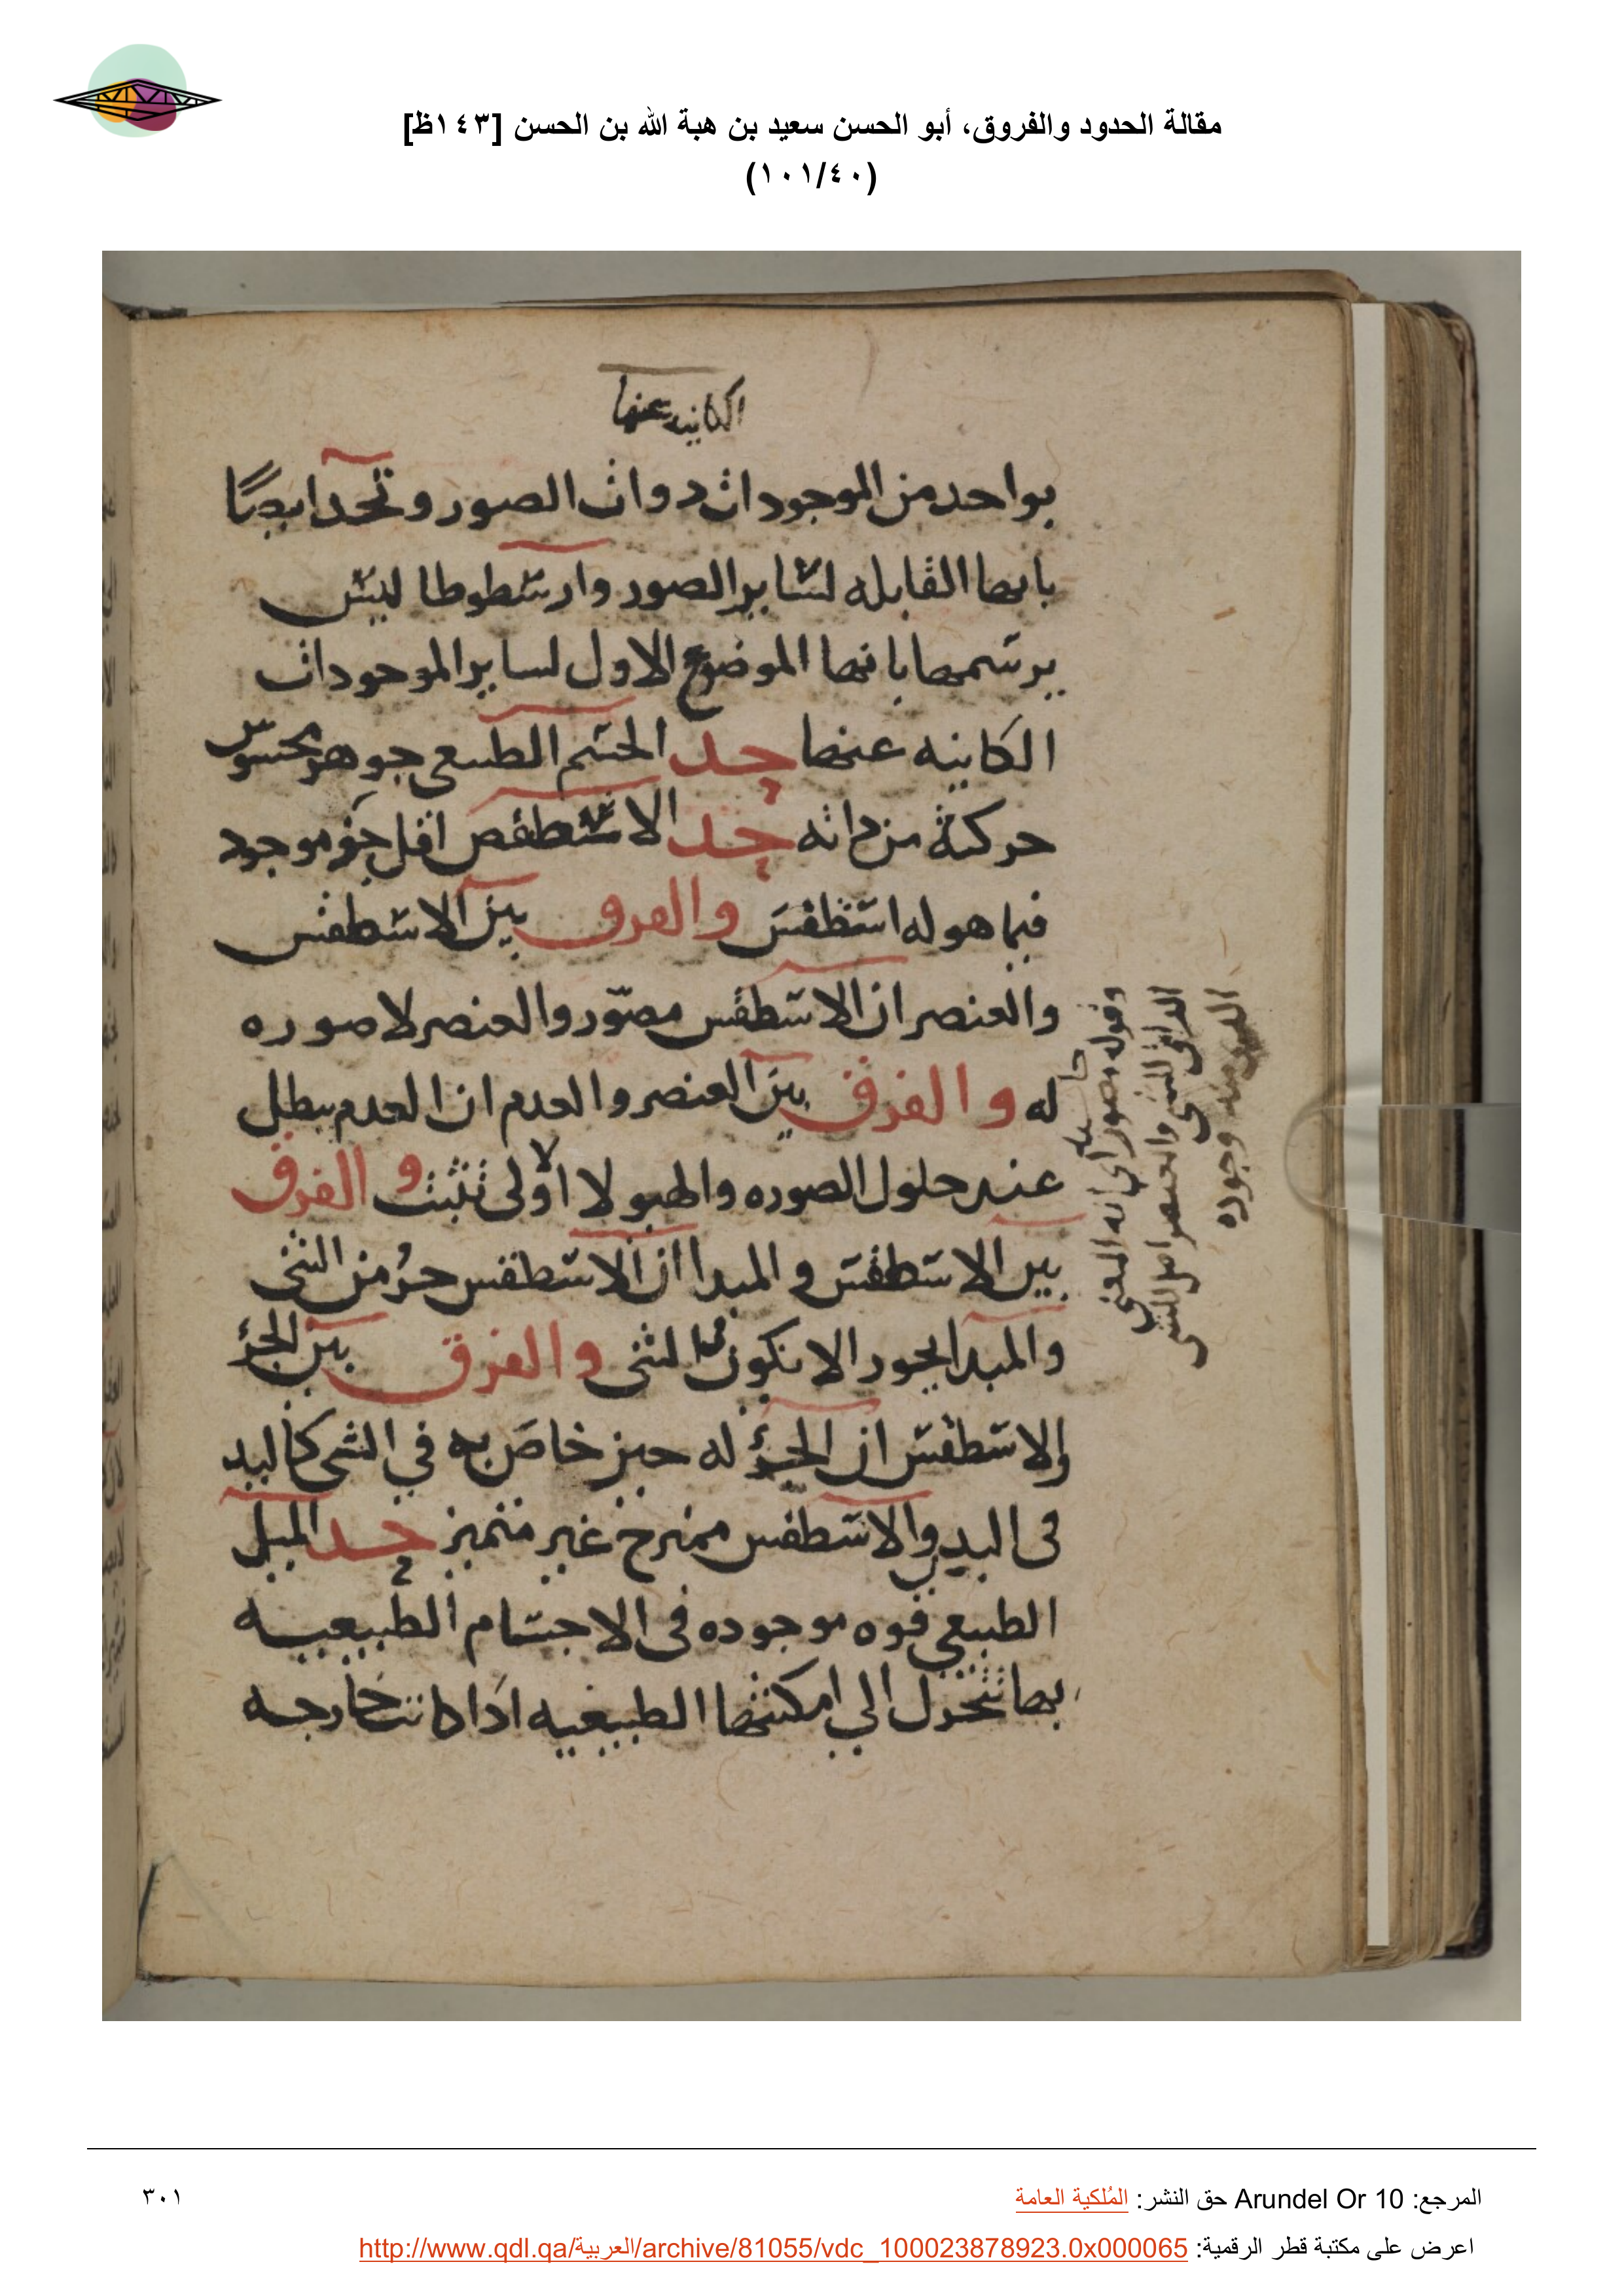 مقالة الحدود والفروق، أبو الحسن سعيد بن هبة الله بن الحسن [١٤٣ظ]
(١٠١/٤٠)
الكانيه عنها
بواحد من الموجودات دوات الصور وتحد ايضًا
بانها القابله لساير الصور وارسطوطاليس
يرسمها بانها الموضوع الاول لساير الموجودات
الكاينه عنها حد الجسم الطبيعى جوهر محسوس
حركته من داته حد الاسطقص اقل جزو موجود
فيما هو له اسطقس والفرق بين الاسطقس
والعنصر ان الاسطقس مصوّر والعنصر لا صوره
له والفرق بين العنصر والعدم ان العدم يبطل
عند حلول الصوره والهيولا الاولى تثبت والفرق
بين الاسطقس والمبدا ان الاسطقس جزُ من الشى
والمبدا يجور الا يكون فى الشى والفرق بين الجزؤ
والاسطقس ان الجزؤ له حيز خاص به في الشى كاليد
فى البدن والاسطقس ممتزج غير متميز حد الميل
الطبيعي قوه موجوده فى الاجسام الطبيعيه
بها تتحرك الي امكنتها الطبيعيه ادا كانت خارجه
وقوله مصور اي انه المعنى
الداتى للشى والعنصر اصل الشى
منه وجوده
المرجع: Arundel Or 10 حق النشر: المُلكية العامة
٣٠١
اعرض على مكتبة قطر الرقمية: http://www.qdl.qa/العربية/archive/81055/vdc_100023878923.0x000065